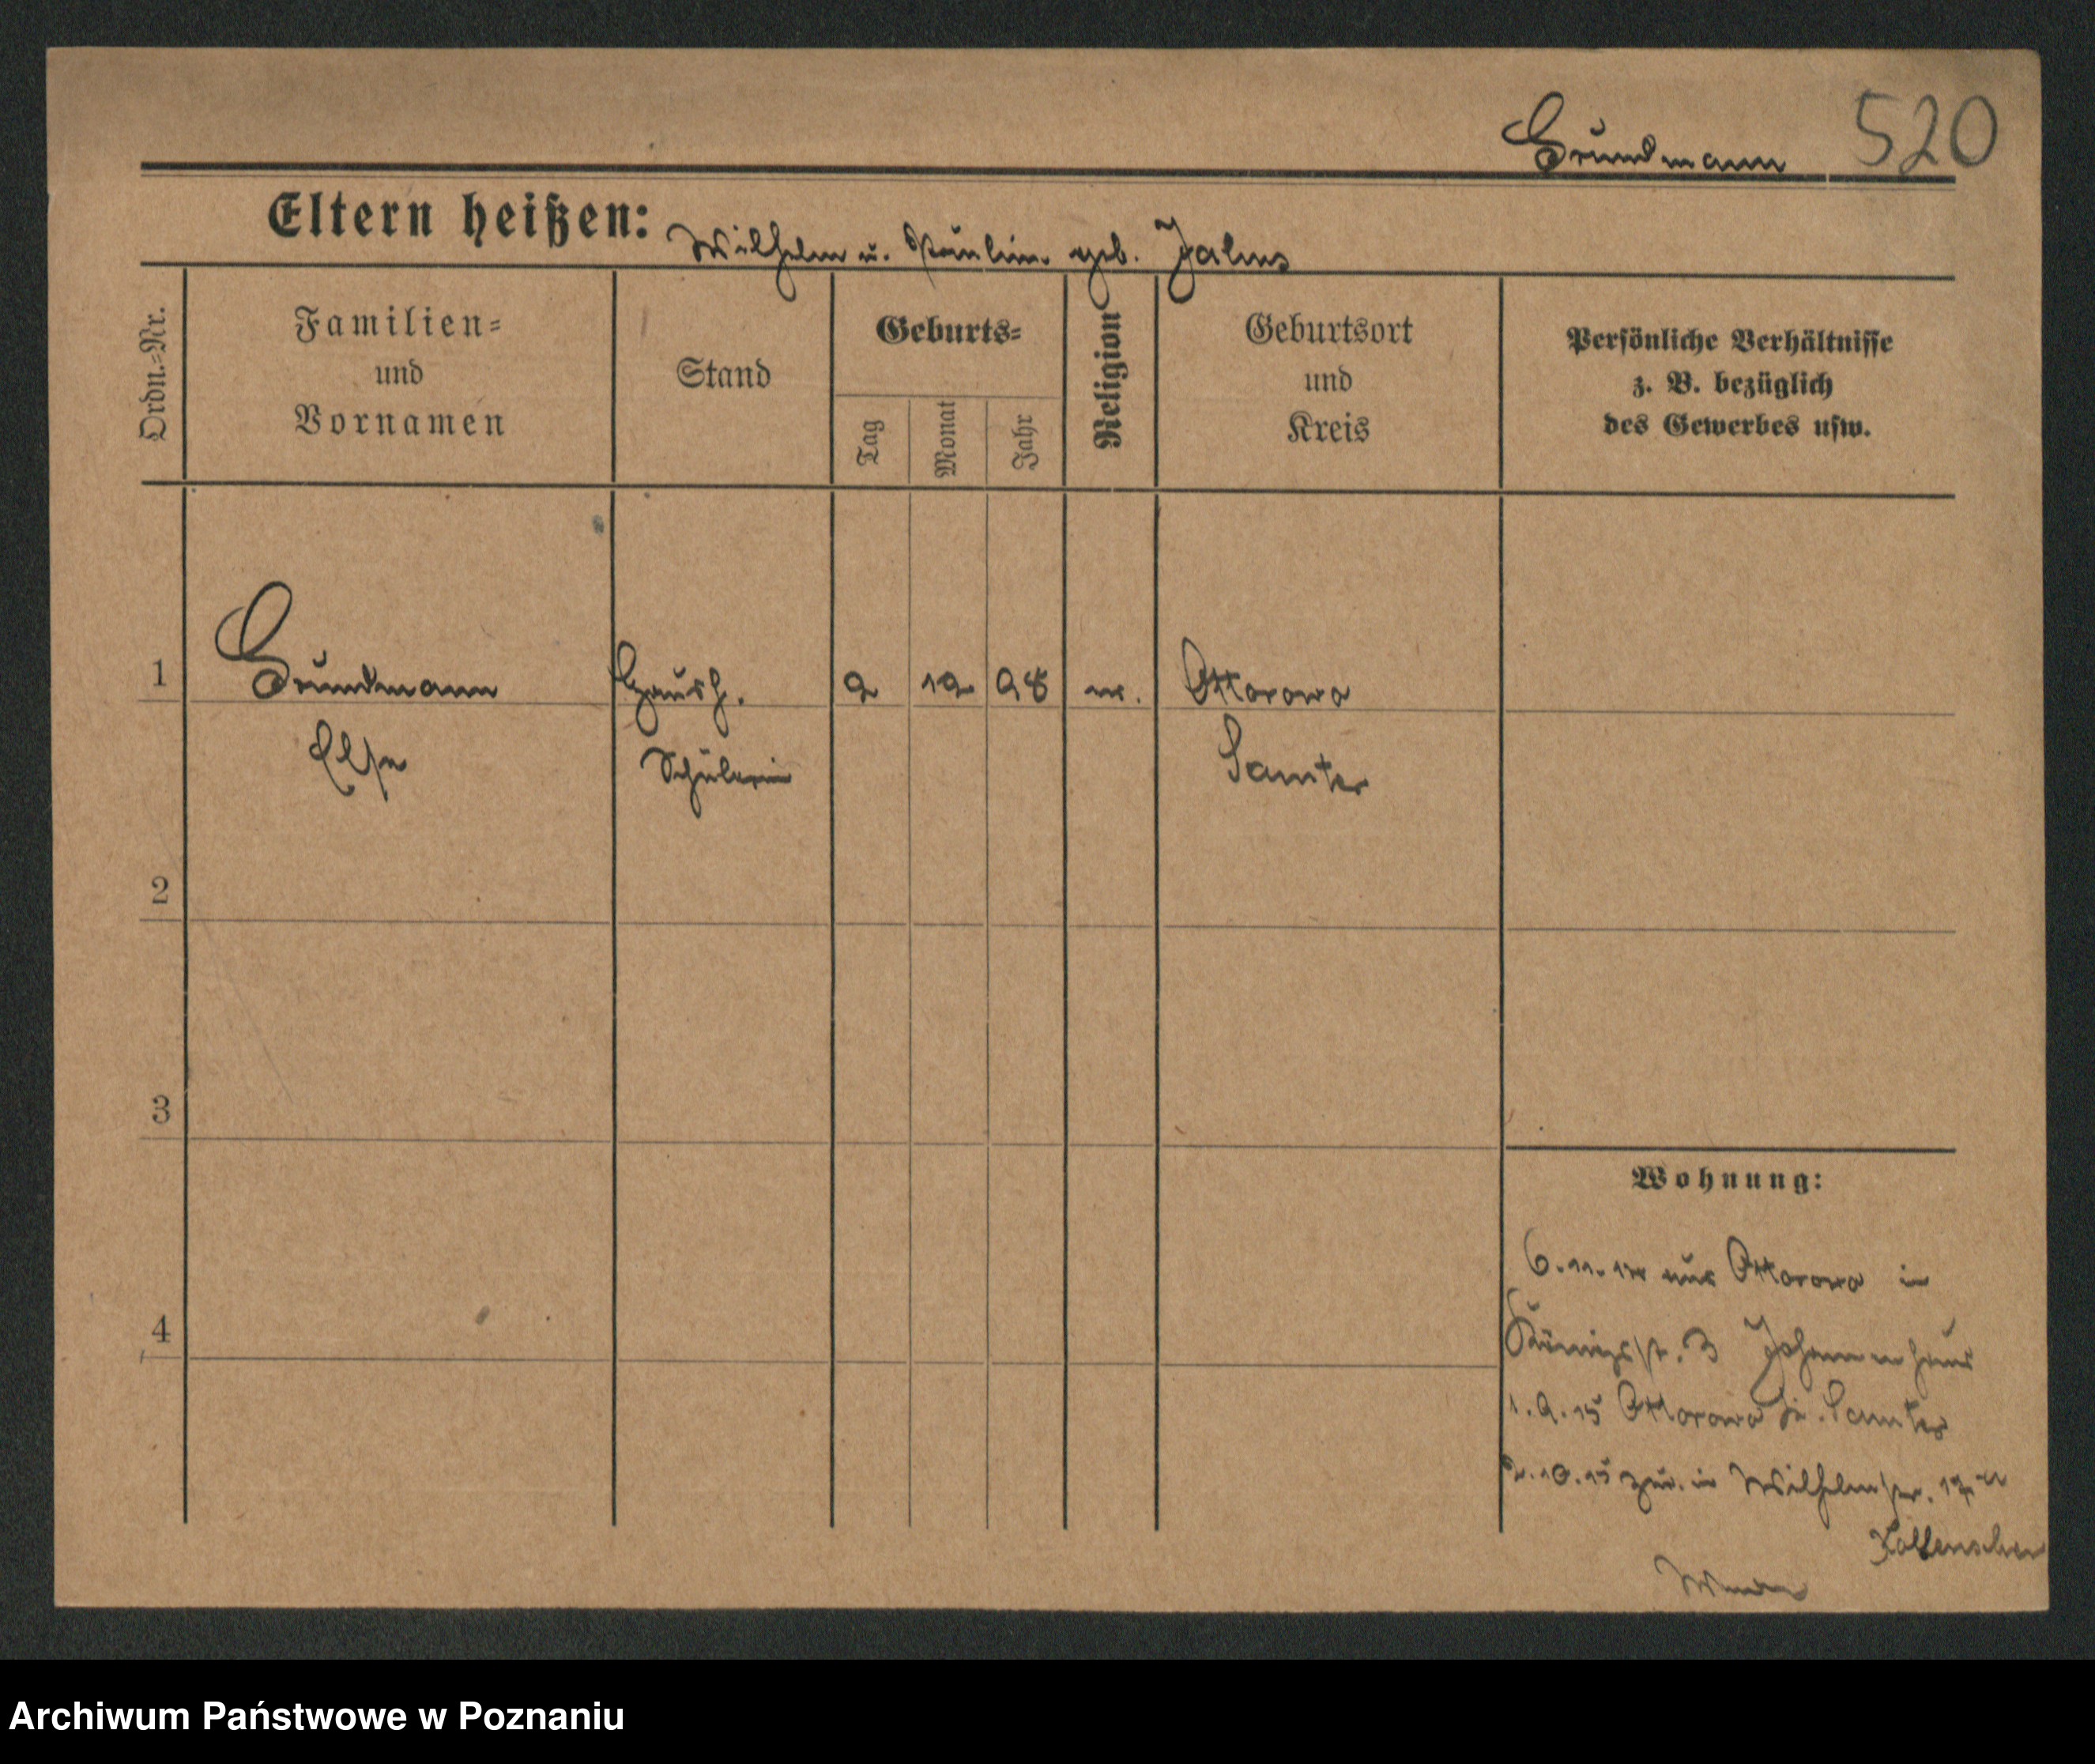 Grundmann 520
Eltern heißen: Wilhelm u. Pauline geb.
Ordn.=Nr.
Familien=
und
Vornamen
Stand
Geburts=
Tag
Monat
Jahr
Religion
Geburtsort
und
Kreis
Persönliche Verhältnisse
z. B. bezüglich
des Gewerbes usw.
1 Grundmann Haush. 2 12 98 Ottorowo
Else Schülerin Samter
2
3
Wohnung:
4
6.11.14 aus Ottorowo in
Königstr. 3 Johannenhaus
1.9.15 Ottorowo Kr. Samter
2.10.15 zur. in Wilhelmstr.
Archiwum Państwowe w Poznaniu